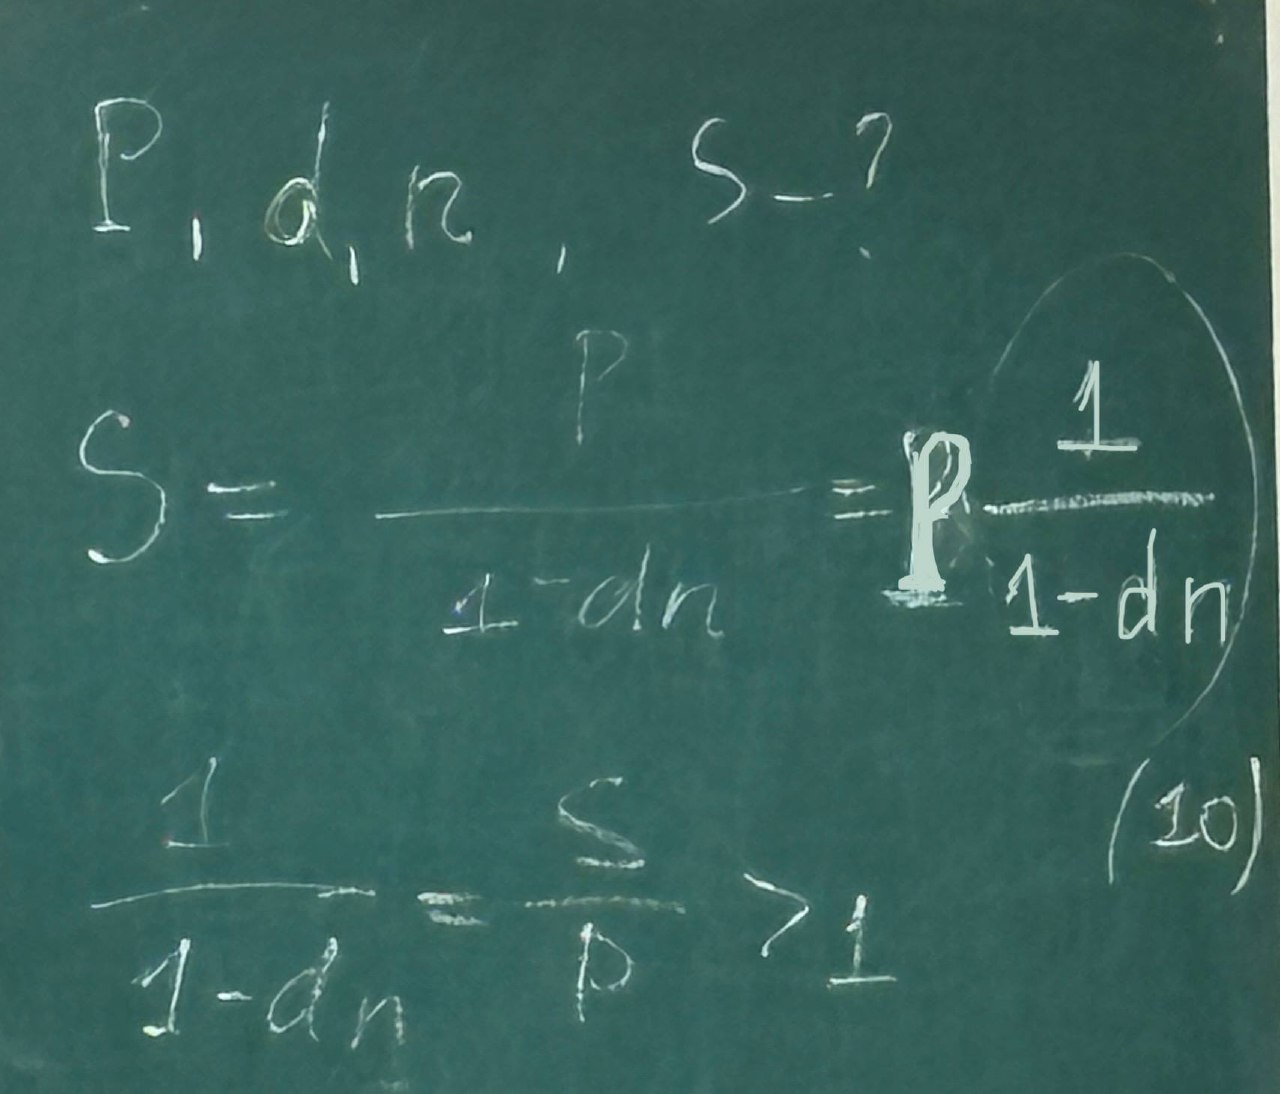 P, d, n, S – ?
S = P / (1 - dn) = P 1 / (1 - dn)
(10)
1 / (1 - dn) = S / P > 1